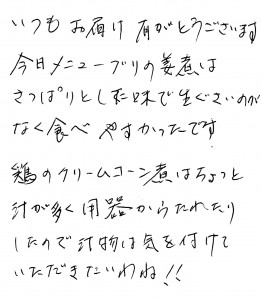 いつもお届け有がとうございます
今日メニューブリの姜煮は
さっぱりとした味で生ぐさいのが
なく食べやすかったです
鶏のクリームコーン煮はちょっと
汁が多く用器からたれたり
したので汁物は気を付けて
いただきたいわね!!